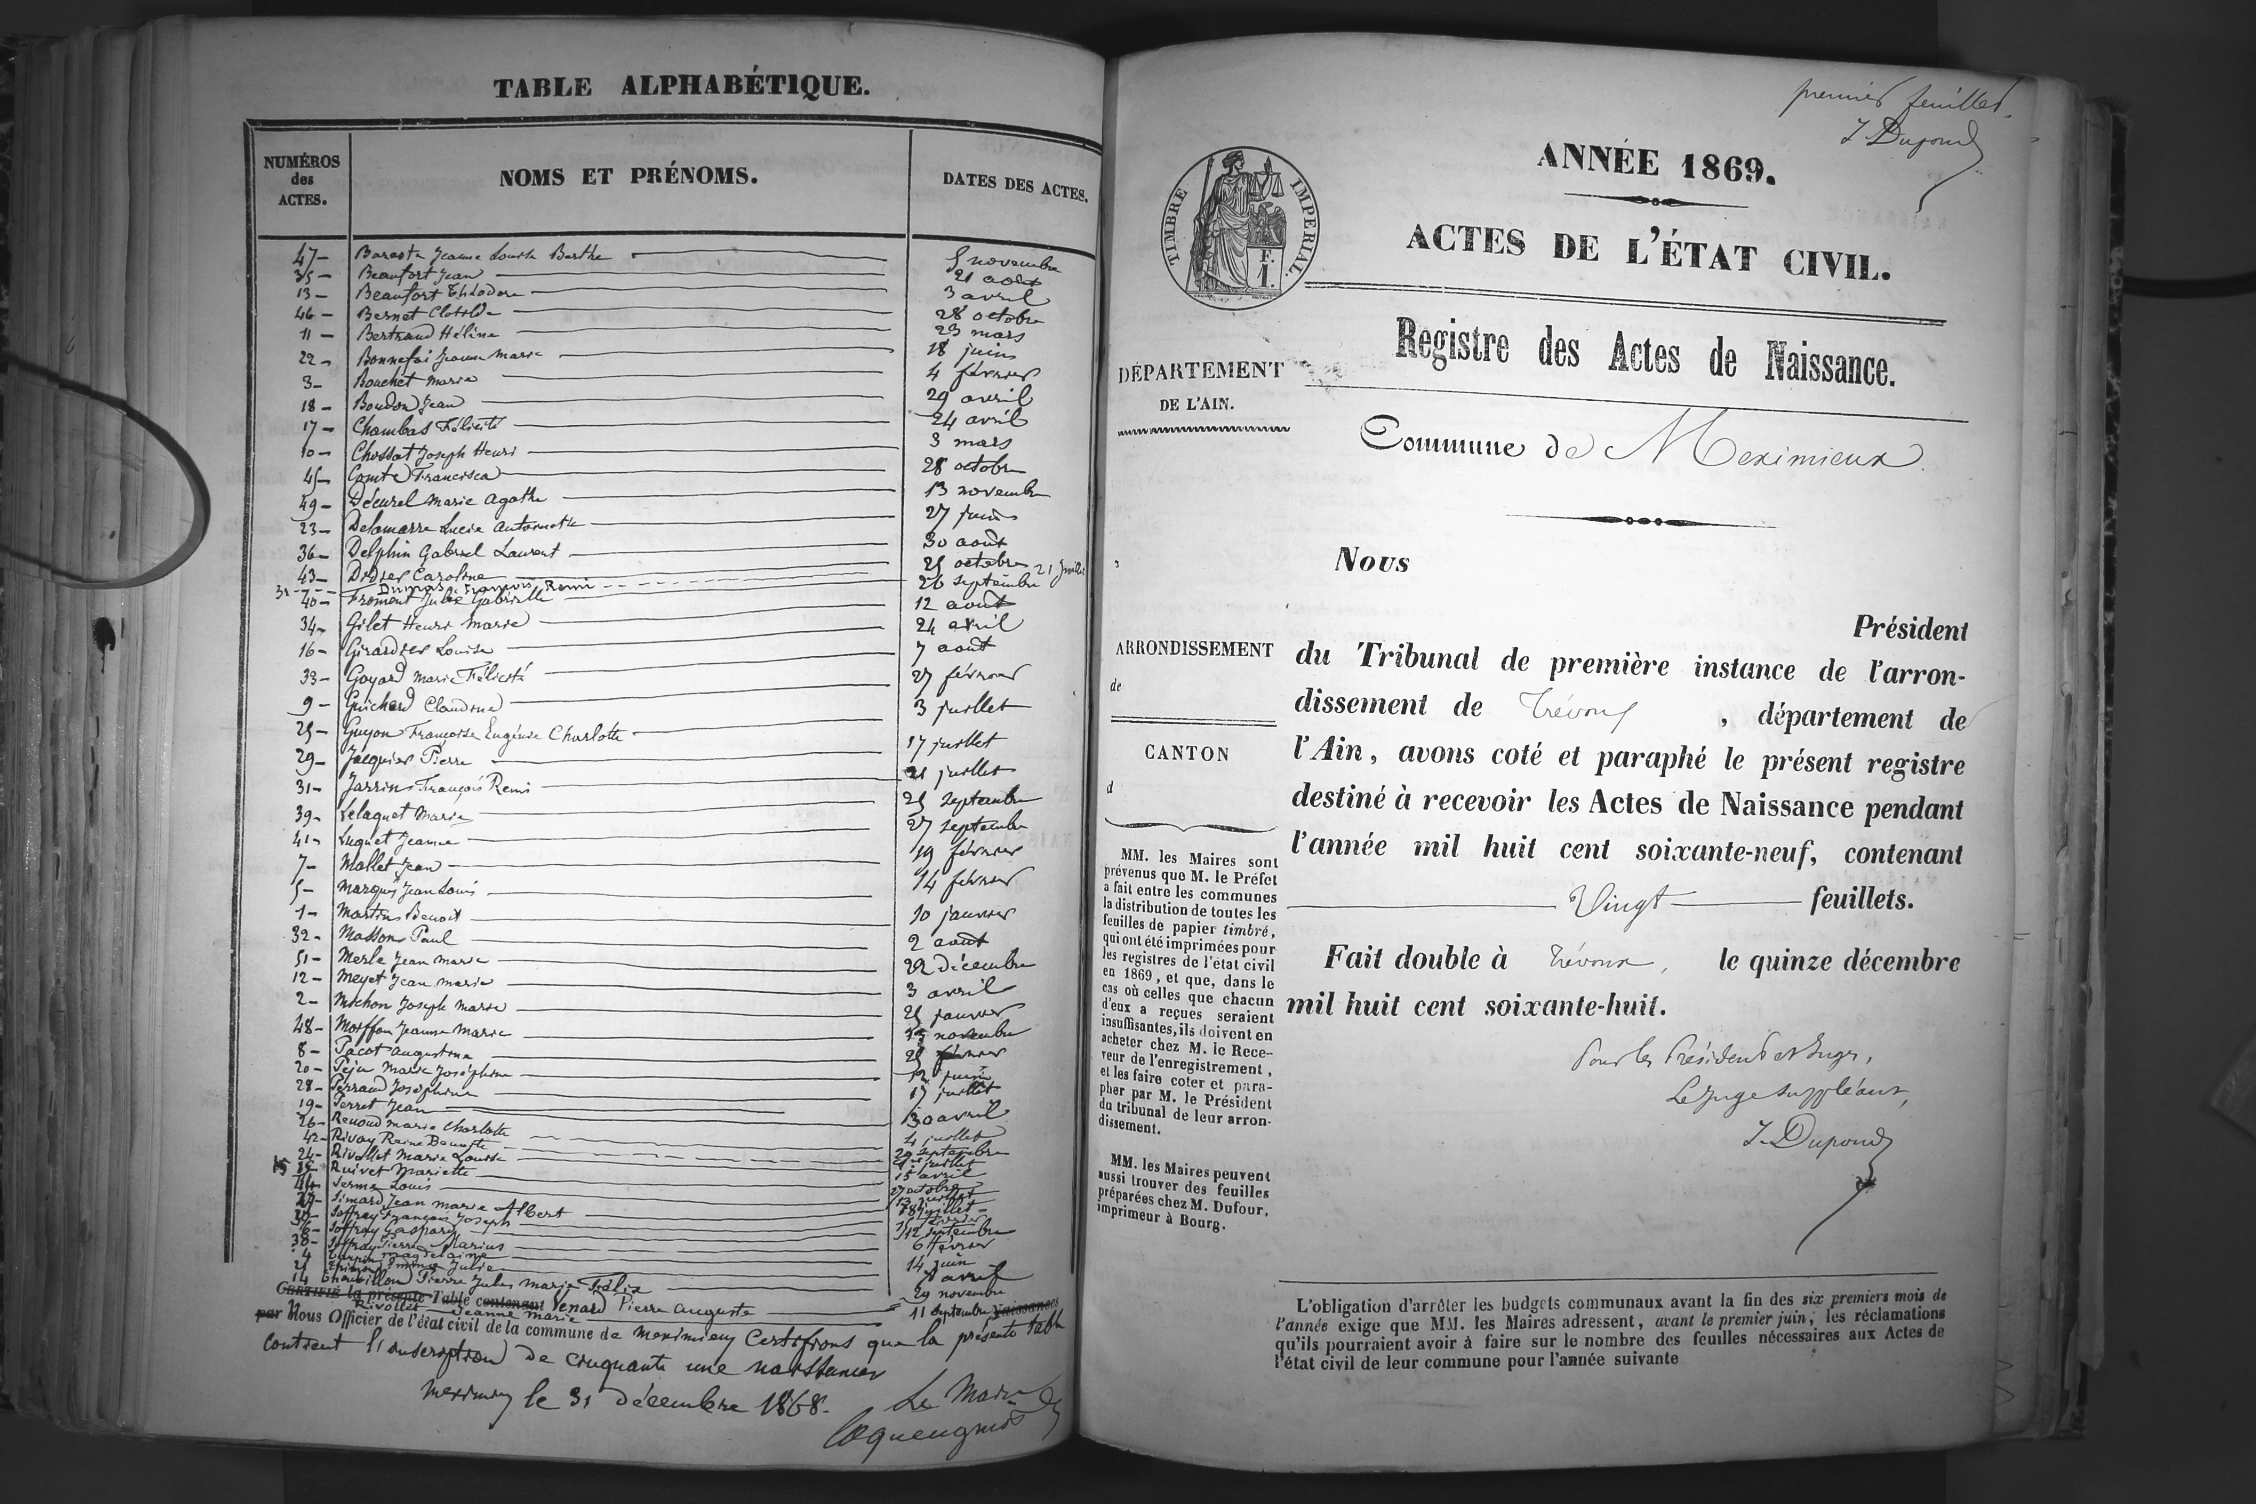 TABLE ALPHABÉTIQUE.
NUMÉROS des ACTES.
NOMS ET PRÉNOMS.
DATES DES ACTES.
47 - Jeanne Louise Berthe 5 novembre
35 - Beaufort Jean 21 août
13 - Beaufort Théodore 3 avril
46 - Bernet Clotilde 28 octobre
11 - Bertrand Hélène 23 mars
22 - Bonnefoi Jeanne Marie 18 juin
3 - Bouchet Marie 4 février
18 - Boudon Jean 29 avril
17 - Chambas Félicité 24 avril
10 - Chossat Joseph Henri 3 mars
45 - Comte Francisca 28 octobre
49 - Décurel Marie Agathe 13 novembre
23 - Delamarre Lucie Antoinette 27 juin
36 - Delphin Gabriel Laurent 30 août
43 - Didier Caroline 25 octobre
31 - Dumas François Remi 21 juillet
40 - Froment Julie Gabrielle 26 septembre
34 - Gilet Henri Marie 12 août
16 - Girardier Louise 24 avril
33 - Goyard Marie Félicité 7 août
9 - Guichard Claudine 27 février
25 - Guyon Françoise Eugénie Charlotte 3 juillet
29 - Jacquier Pierre 17 juillet
31 - Jarrin François Remi 21 juillet
39 - Lelaquet Marie 25 septembre
41 - Luquet Jeanne 27 septembre
7 - Mallet Jean 19 février
5 - Marquis Jean Louis 14 février
1 - Martin Benoit 10 janvier
32 - Masson Paul 2 août
51 - Merle Jean Marie 22 décembre
12 - Meyet Jean Marie 3 avril
2 - Michon Joseph Marie 25 janvier
48 - Moiffon Jeanne Marie novembre
8 - Pacot Augustine 25 février
20 - Péju Marie Joséphine 12 juin
28 - Perraud Joséphine 17 juillet
19 - Perret Jean 30 avril
26 - Renoud Marie Charlotte 4 juillet
42 - Rivoy Reine Benoite 29 septembre
24 - Rivollet Marie Louise juillet
15 - Ruivet Mariette 15 avril
44 - Serme Louis 27 octobre
27 - Simard Jean Marie Albert 13 juillet
30 - Soffray François Joseph 18 juillet
6 - Soffray Gaspard
38 - Soffray Pierre Marius 12 septembre
4 Magdelaine 6 février
21 Julie 14 juin
14 Pierre Jules Marie Félix avril
Certifié la présente Table contenant Venard Pierre Auguste 29 novembre
Rivollet Jeanne Marie 11 septembre Naissances
par Nous Officier de l'état civil de la commune de Meximieux Certifions que la présente table
contient l'inscription de cinquante une naissances
Meximieux le 31 décembre 1868.
Le Maire
premier feuillet.
J. Dupond
ANNÉE 1869.
TIMBRE IMPERIAL.
F.
1.
ACTES DE L'ÉTAT CIVIL.
Registre des Actes de Naissance.
DÉPARTEMENT
DE L'AIN.
Commune de Meximieux
Nous
Président
ARRONDISSEMENT
de
CANTON
d
du Tribunal de première instance de l'arron-
dissement de Trévoux, département de
l'Ain, avons coté et paraphé le présent registre
destiné à recevoir les Actes de Naissance pendant
l'année mil huit cent soixante-neuf, contenant
Vingt feuillets.
Fait double à Trévoux, le quinze décembre
mil huit cent soixante-huit.
Pour le Président et Juges,
Le Juge suppléant,
J. Dupond
MM. les Maires sont
prévenus que M. le Préfet
a fait entre les communes
la distribution de toutes les
feuilles de papier timbré,
qui ont été imprimées pour
les registres de l'état civil
en 1869, et que, dans le
cas où celles que chacun
d'eux a reçues seraient
insuffisantes, ils doivent en
acheter chez M. le Rece-
veur de l'enregistrement,
et les faire coter et para-
pher par M. le Président
du tribunal de leur arron-
dissement.
MM. les Maires peuvent
aussi trouver des feuilles
préparées chez M. Dufour,
imprimeur à Bourg.
L'obligation d'arrêter les budgets communaux avant la fin des six premiers mois de
l'année exige que MM. les Maires adressent, avant le premier juin, les réclamations
qu'ils pourraient avoir à faire sur le nombre des feuilles nécessaires aux Actes de
l'état civil de leur commune pour l'année suivante